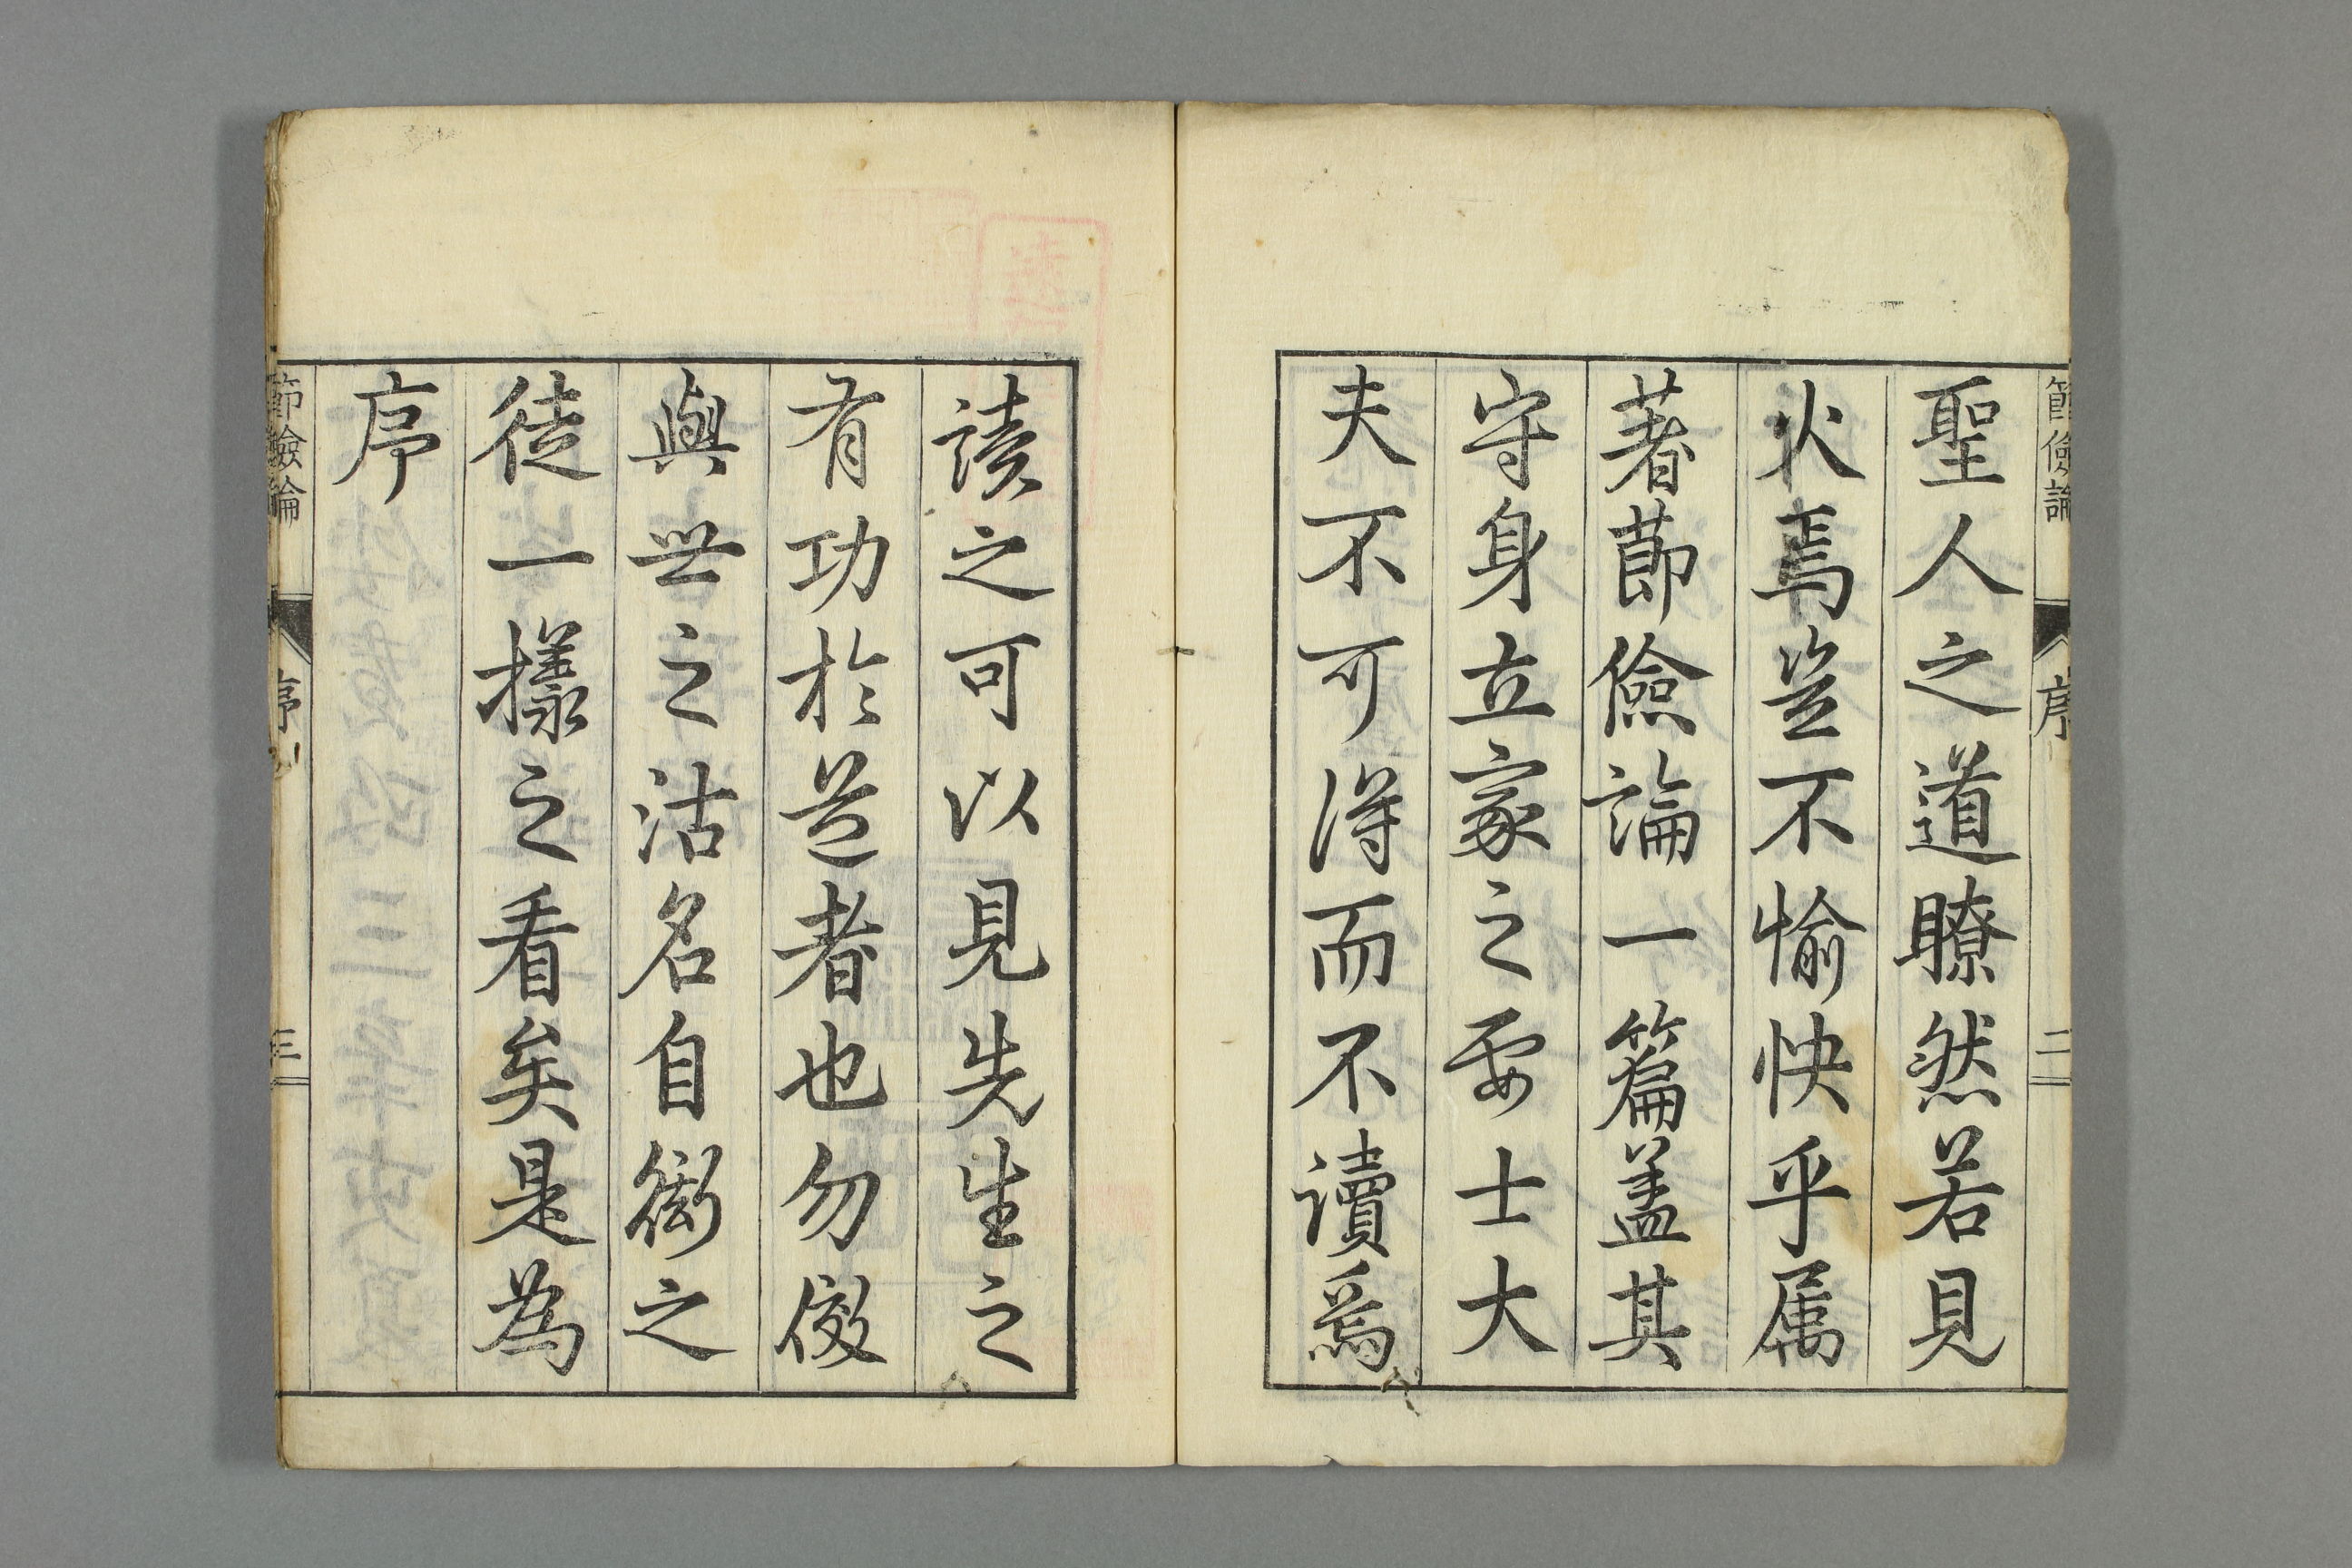 節儉論
序
二
聖人之道瞭然若見
火焉豈不愉快乎属
著節儉論一篇盖其
守身立家之要士大
夫不可得而不讀焉
読之可以見先生之
有功於是者也勿
與世之沽名自衒之
徒一様之看矣是為
序
節儉論
序
三